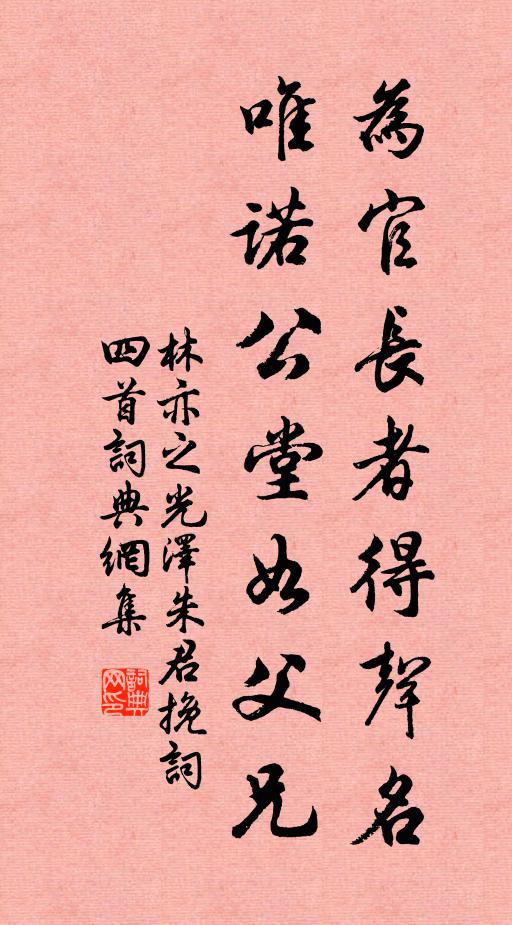 為官長者得聲名
唯諾公堂如父兄
林亦之光澤朱君挽詞
四首詞典網集
詞典网印